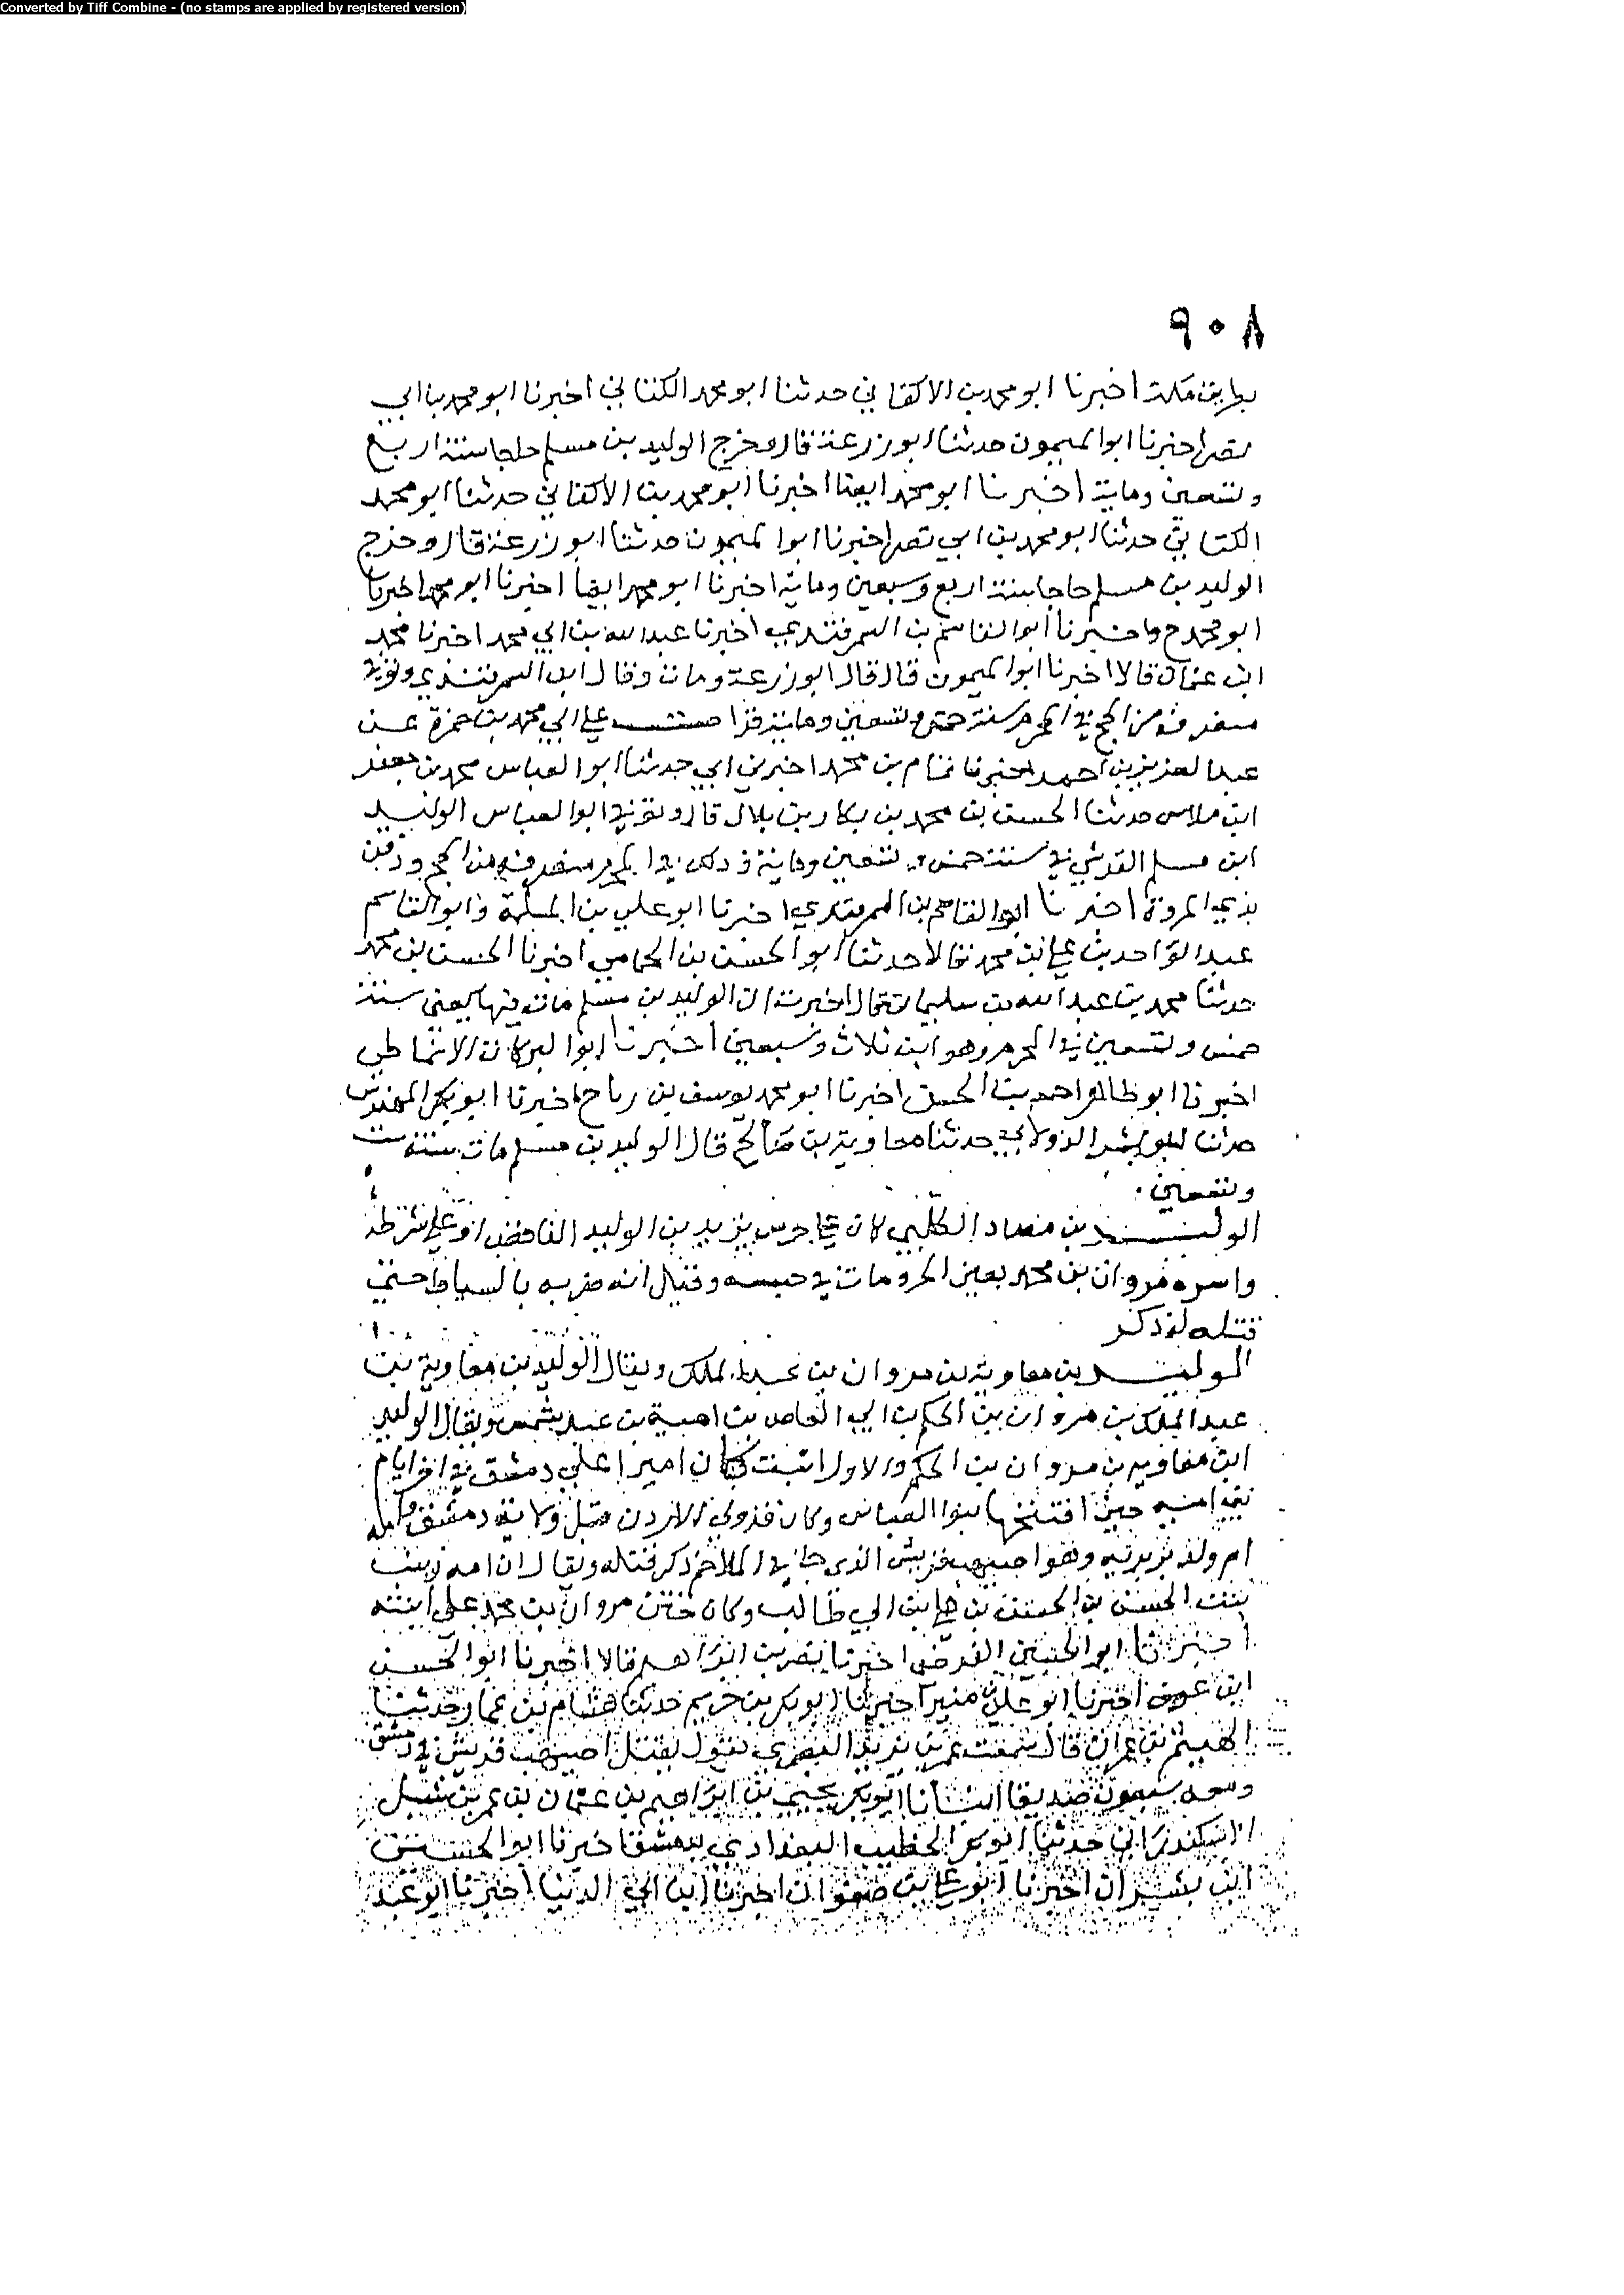 Converted by Tiff Combine - (no stamps are applied by registered version)
٩٠٨
بطريق مكة اخبرنا ابو محمد بن الاكفاني حدثنا ابو محمد الكتاني اخبرنا ابو محمد بن ابي
نصر اخبرنا ابو الميمون حدثنا ابو زرعة قال وخرج الوليد بن مسلم حاجا سنة اربع
وتسعين وماية اخبرنا ابو محمد ايضا اخبرنا ابو محمد بن الاكفاني حدثنا ابو محمد
الكتاني حدثنا ابو محمد بن ابي نصر اخبرنا ابو الميمون حدثنا ابو زرعة قال وخرج
الوليد بن مسلم حاجا سنة اربع وسبعين وماية اخبرنا ابو محمد ايضا اخبرنا ابو محمد اخبرنا
ابو محمد ح واخبرنا ابو القاسم بن السمرقندي اخبرنا عبد الله بن ابي محمد اخبرنا محمد
ابن عثمان قالا اخبرنا ابو الميمون قال قال ابو زرعة ومات وقال ابن السمرقندي وتوفي
منصرفه من الحج في المحرم سنة خمس وتسعين وماية قرات على ابي محمد بن حمزة عن
عبد العزيز بن احمد اخبرنا تمام بن محمد اخبرني ابي حدثنا ابو العباس محمد بن جعفر
ابن ملاس حدثنا الحسن بن محمد بن بكار بن بلال قال وتوفي ابو العباس الوليد
ابن مسلم القرشي في سنة خمس وتسعين وماية وذلك في المحرم منصرفه من الحج ودفن
بذي المروة اخبرنا ابو القاسم بن السمرقندي اخبرنا ابو علي بن المسلمة وابو القاسم
عبد الواحد بن علي بن محمد قالا حدثنا ابو الحسن بن الحمامي اخبرنا الحسن بن محمد
حدثنا محمد بن عبد الله بن سليمان قال اخبرت ان الوليد بن مسلم مات فيها يعني سنة
خمس وتسعين في المحرم وهو ابن ثلاث وسبعين اخبرنا ابو البركات الانماطي
اخبرنا ابو طاهر احمد بن الحسن اخبرنا ابو محمد يوسف بن رباح اخبرنا ابو بكر المهندس
حدثنا ابو بشر الدولابي حدثنا معاوية بن صالح قال الوليد بن مسلم مات سنة ست
وتسعين
الوليد بن مصاد الكلبي كان على حرس يزيد بن الوليد الناقص او على شرطه
واسره مروان بن محمد بعين الجر ومات في حبسه وقيل انه ضربه بالسياط حتى
قتله له ذكر
الوليد بن معاوية بن مروان بن عبد الملك ويقال الوليد بن معاوية بن
عبد الملك بن مروان بن الحكم بن ابي العاص بن امية بن عبد شمس ويقال الوليد
ابن معاوية بن مروان بن الحكم والاول اثبت كان اميرا على دمشق في اخر ايام
بني امية حين افتتحها بنو العباس وكان قد ولي الاردن قبل ولاية دمشق وامه
ام ولد بربرية وهو اصيهب قريش الذي جا في الملاحم ذكر قتله ويقال ان امه زينب
بنت الحسن بن الحسن بن علي بن ابي طالب وكان ختن مروان بن محمد على ابنته
اخبرنا ابو الحسين الفرضي اخبرنا نصر بن ابراهيم قالا اخبرنا ابو الحسن
ابن عوف اخبرنا ابو علي بن منير اخبرنا ابو بكر بن خريم حدثنا هشام بن عمار حدثنا
الهيثم بن عمران قال سمعت عمر بن يزيد النصري يقول يقتل اصيهب قريش في دمشق
ومعه سبعون صديقا انبانا ابو بكر يحيى بن ابراهيم بن عثمان بن عمر بن شبل
الاسكندراني حدثنا ابو بكر الخطيب البغدادي بدمشق اخبرنا ابو الحسين
ابن بشران اخبرنا ابو علي بن صفوان اخبرنا ابن ابي الدنيا اخبرنا ابو عبد